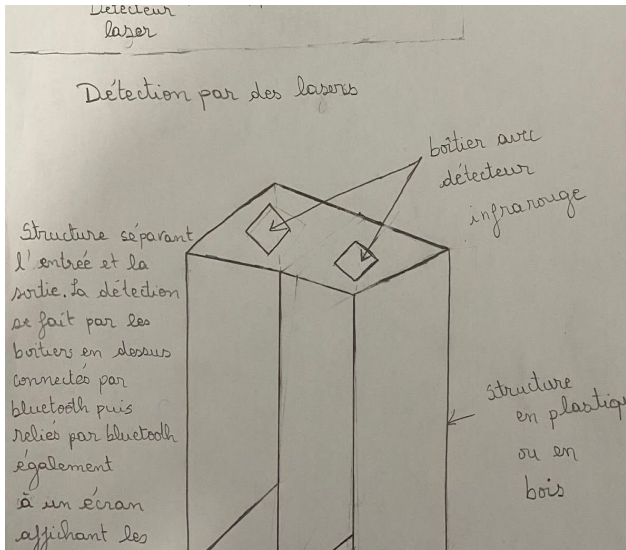 Détecteur
laser
Détection par des lasers
boîtier avec
détecteur
infrarouge
Structure séparant
l'entrée et la
sortie. La détection
se fait par les
boîtiers en dessus
connectés par
bluetooth puis
reliés par bluetooth
également
à un écran
affichant les
structure
en plastiqu
ou en
bois